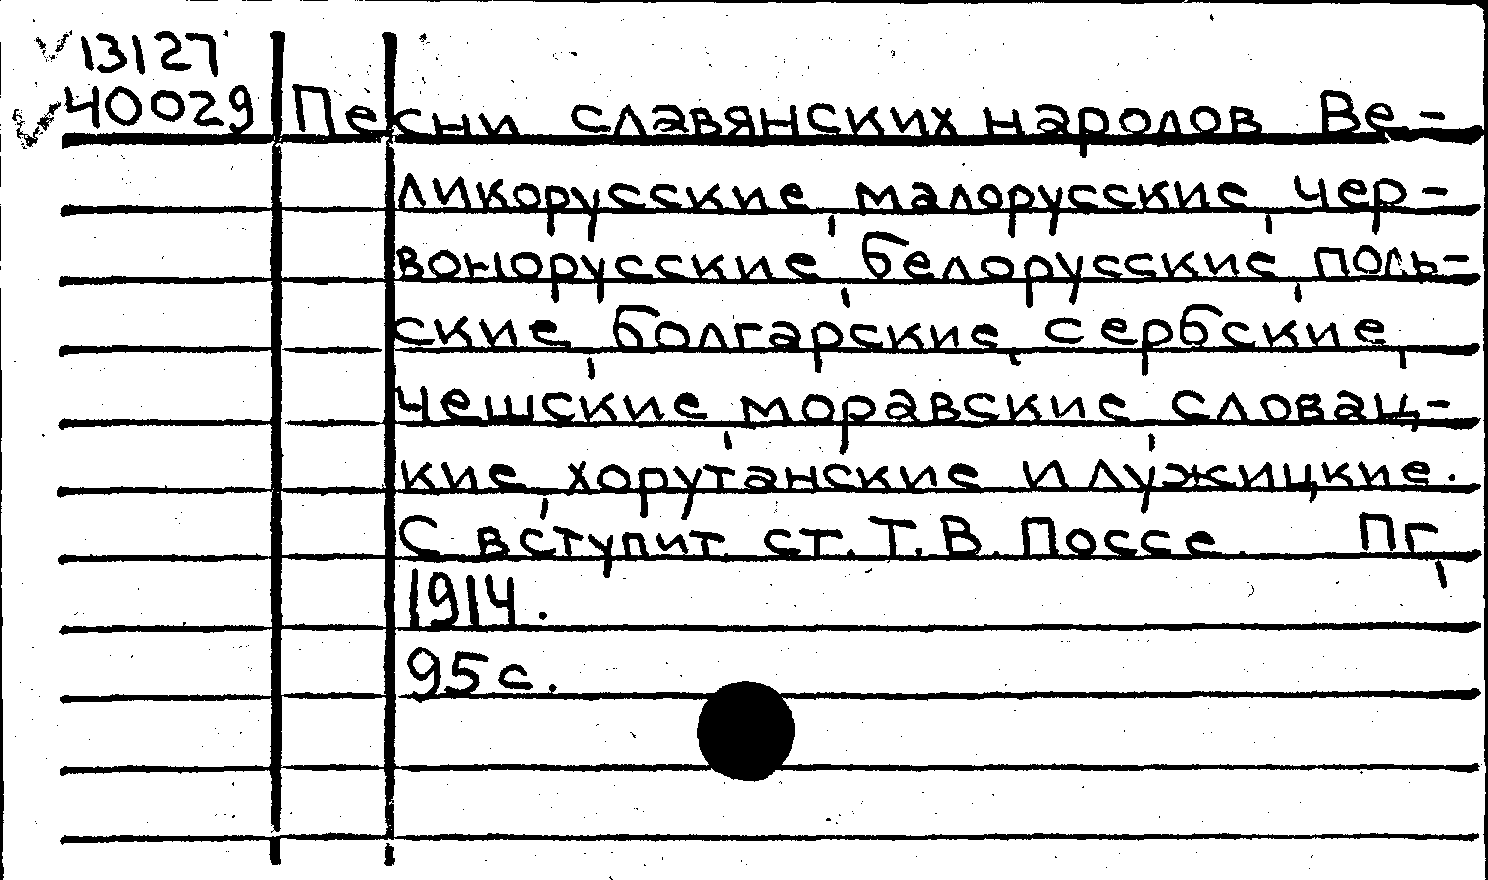 13127
40029 Песни славянских народов Ве-
ликорусские, малорусские, чер-
вонорусские, белорусские, поль-
ские, болгарские, сербские,
чешские, моравские, словац-
кие, хорутанские и лужицкие.
С вступит. ст. Т. В. Поссе. Пг,
1914.
95 с.